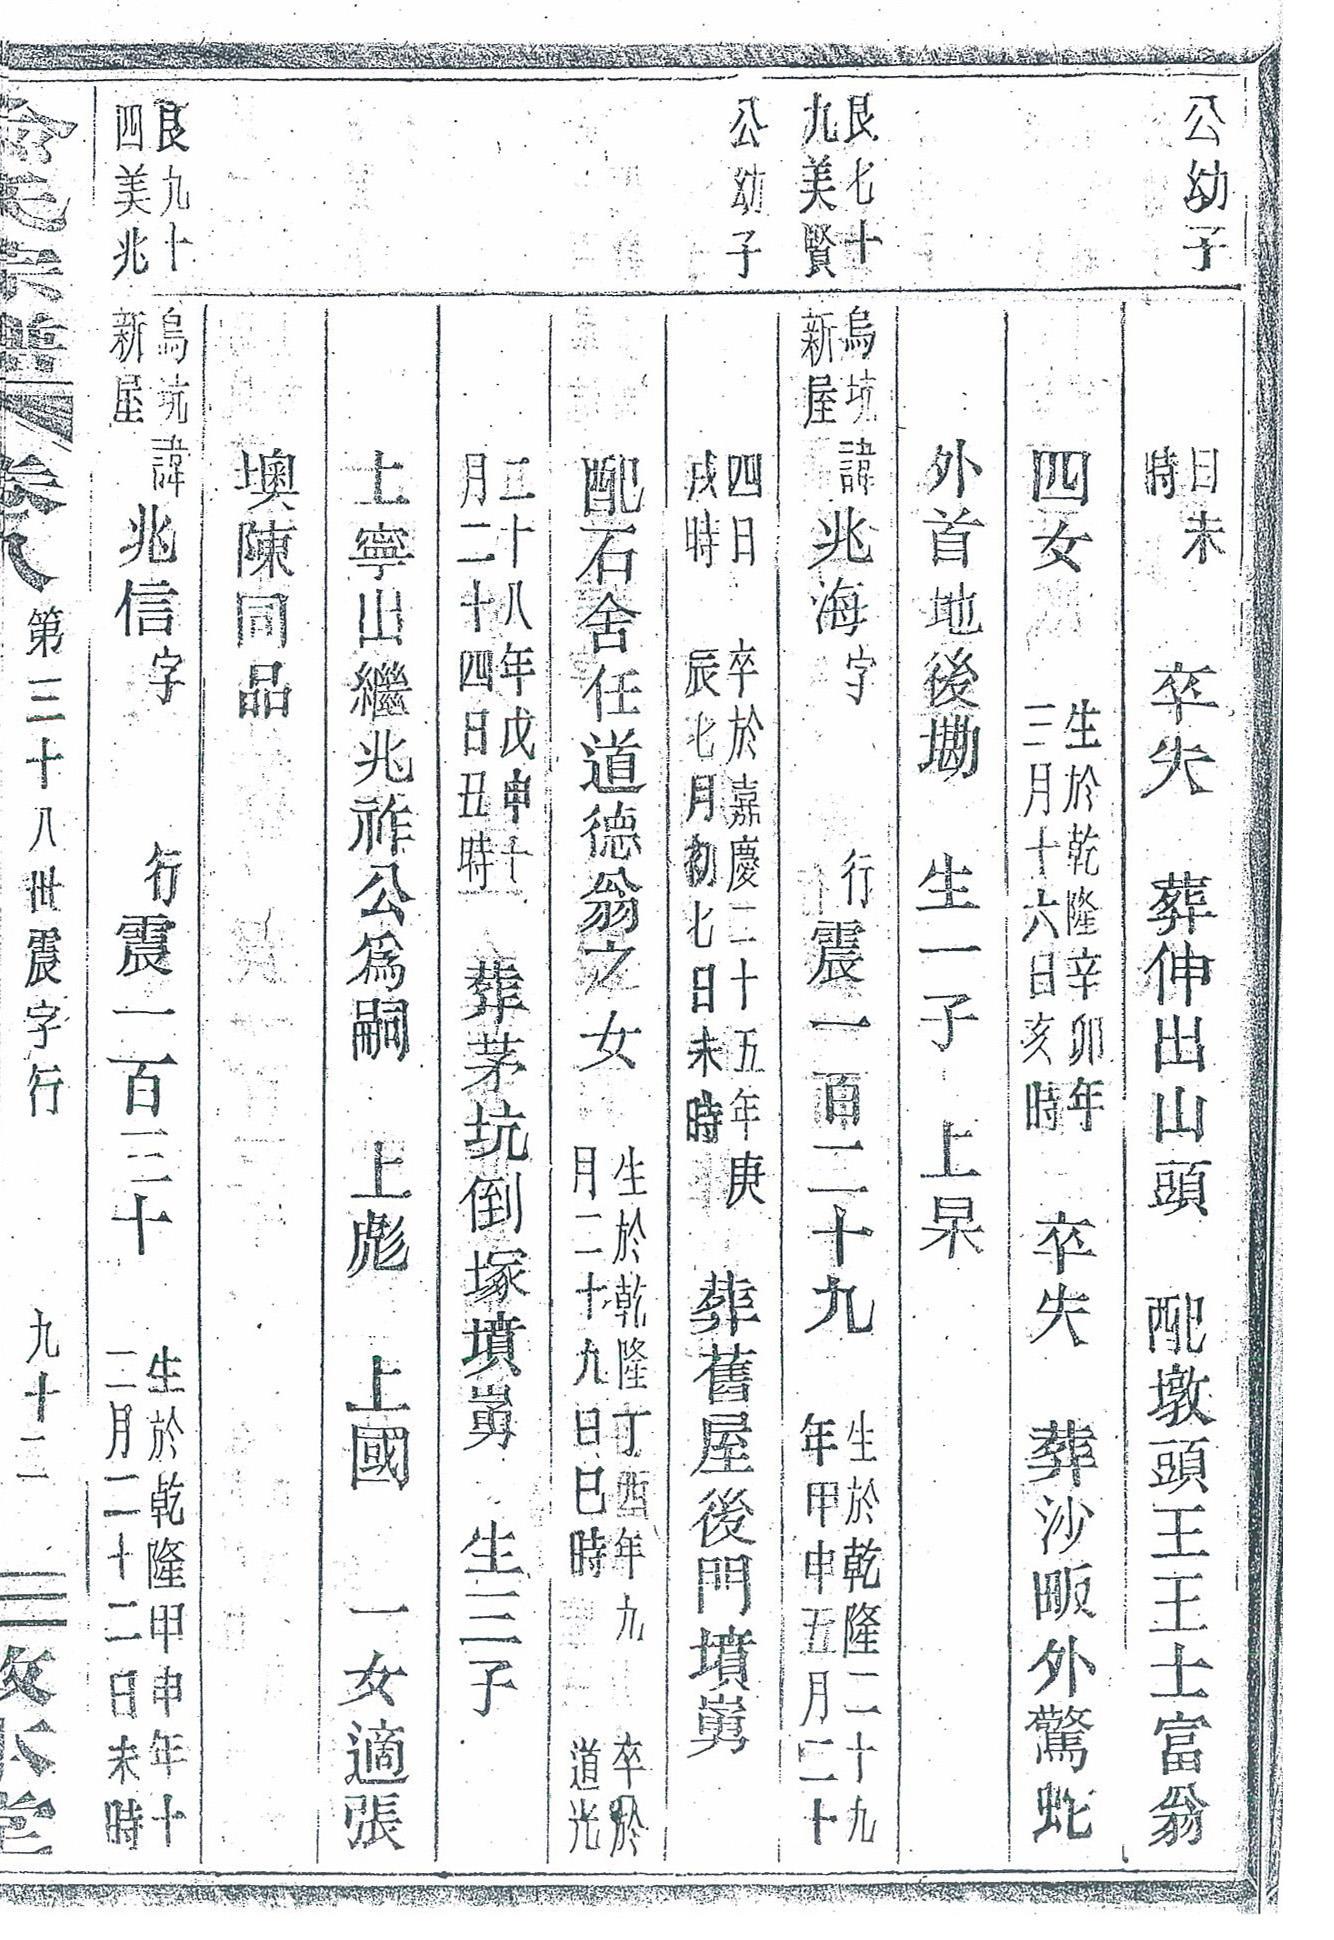 公幼子
日未
時
卒失 葬伸出山頭 配墩頭王王士富翁
四女
生於乾隆辛卯年
三月十六日亥時
卒失 葬沙畈外驚蛇
外首地後塝 生一子 上杲
艮七十
九美賢
烏坑
新屋
諱兆海字 行震一百二十九
生於乾隆二十九
年甲申五月二十
公幼子
四日
戌時
卒於嘉慶二十五年庚
辰七月初七日未時
葬舊屋後門墳
配石舍任道德翁之女
生於乾隆丁酉年九
月二十九日巳時
卒於
道光
二十八年戊申十
月二十四日丑時
葬茅坑倒塚墳 生三子
上寧出繼兆祚公為嗣 上彪 上國 一女適張
墺陳同品
艮九十
四美兆
烏坑
新屋
諱兆信字 行震一百三十
生於乾隆甲申年十
二月二十二日未時
氏宗譜 卷八 第三十八世震字行 九十二 敦本堂